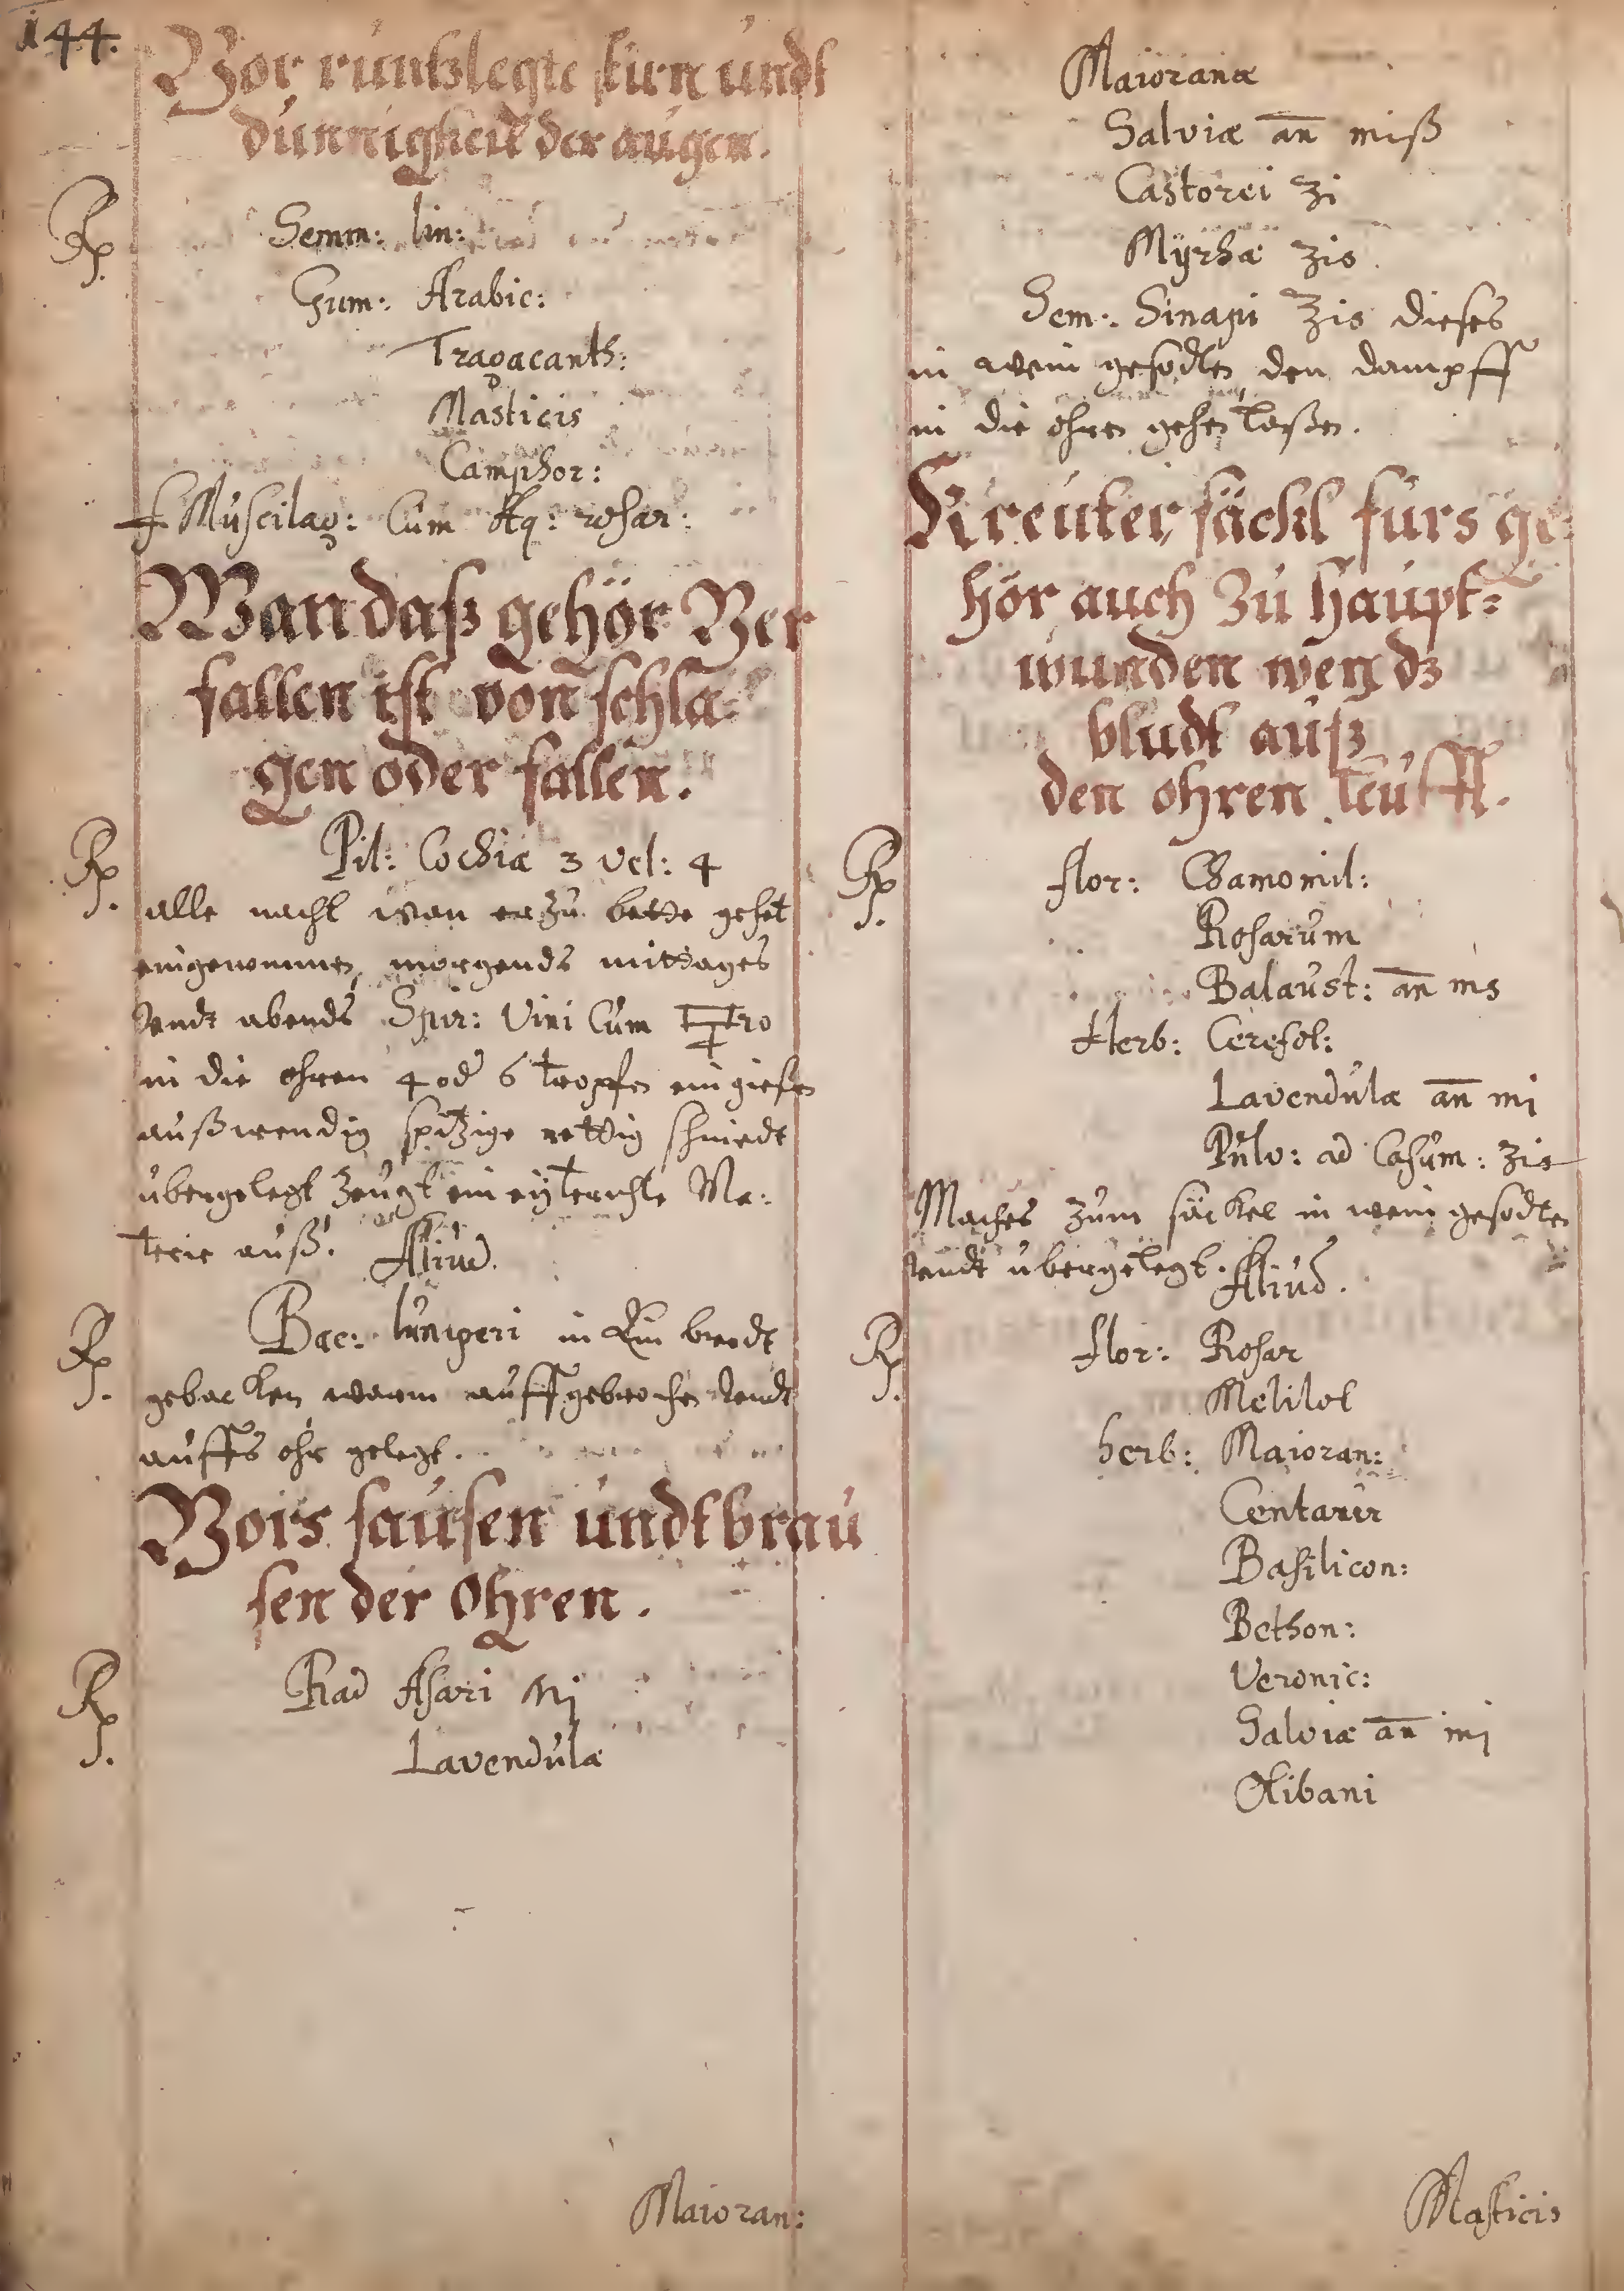 144.
Vor runtzlegte stirn undt
dünnigkeit der augen.
Rp. Semm: lin:
Gum: Arabic:
Tragacanth:
Masticis
Camphor:
f Muscilag: Cum Aq: rosar:
Wan daß gehör Ver
fallen ist von schla=
gen oder fallen.
Rp. Pil: Cochiæ 3 vel: 4
alle nacht wan er zu bette gehet
eingenommen, morgends mittages
undt abends Spir: Vini Cum
in die ohren 4 od 6 tropfen eingießen
außwendig spitzige rettig schniedt
übergelegt zeugt ein eyterichte Ma:
terie auß. Aliud.
Rp. Bac: Iuniperi in Ein brodt
gebacken warm auffgebrochen undt
auffs ohr gelegt.
Vors sausen undt brau
sen der Ohren.
Rp. Rad Asari Mj
Lavendulæ
Maioran:
Maioranæ
Salviæ an miß
Castorei ʒi
Myrhæ ʒis
Sem: Sinapi ʒis dieses
in wein gesodten den dampff
in die ohren gehen laßen.
Kreuter säckl fürs ge=
hör auch zu haupt=
wunden wen dz
bludt auß
den ohren leufft.
Rp. flor: Chamomil:
Rosarum
Balaust: an ms
Herb: Cerefol:
Lavendulæ an mj
Pulv: ad Casum: ʒis
Maches zum säckel in wein gesodten
undt übergelegt. Aliud.
Rp. flor: Rosar
Melilot
herb: Maioran:
Centaur
Basilicon:
Bethon:
Veronic:
Salviæ an mj
Olibani
Masticis